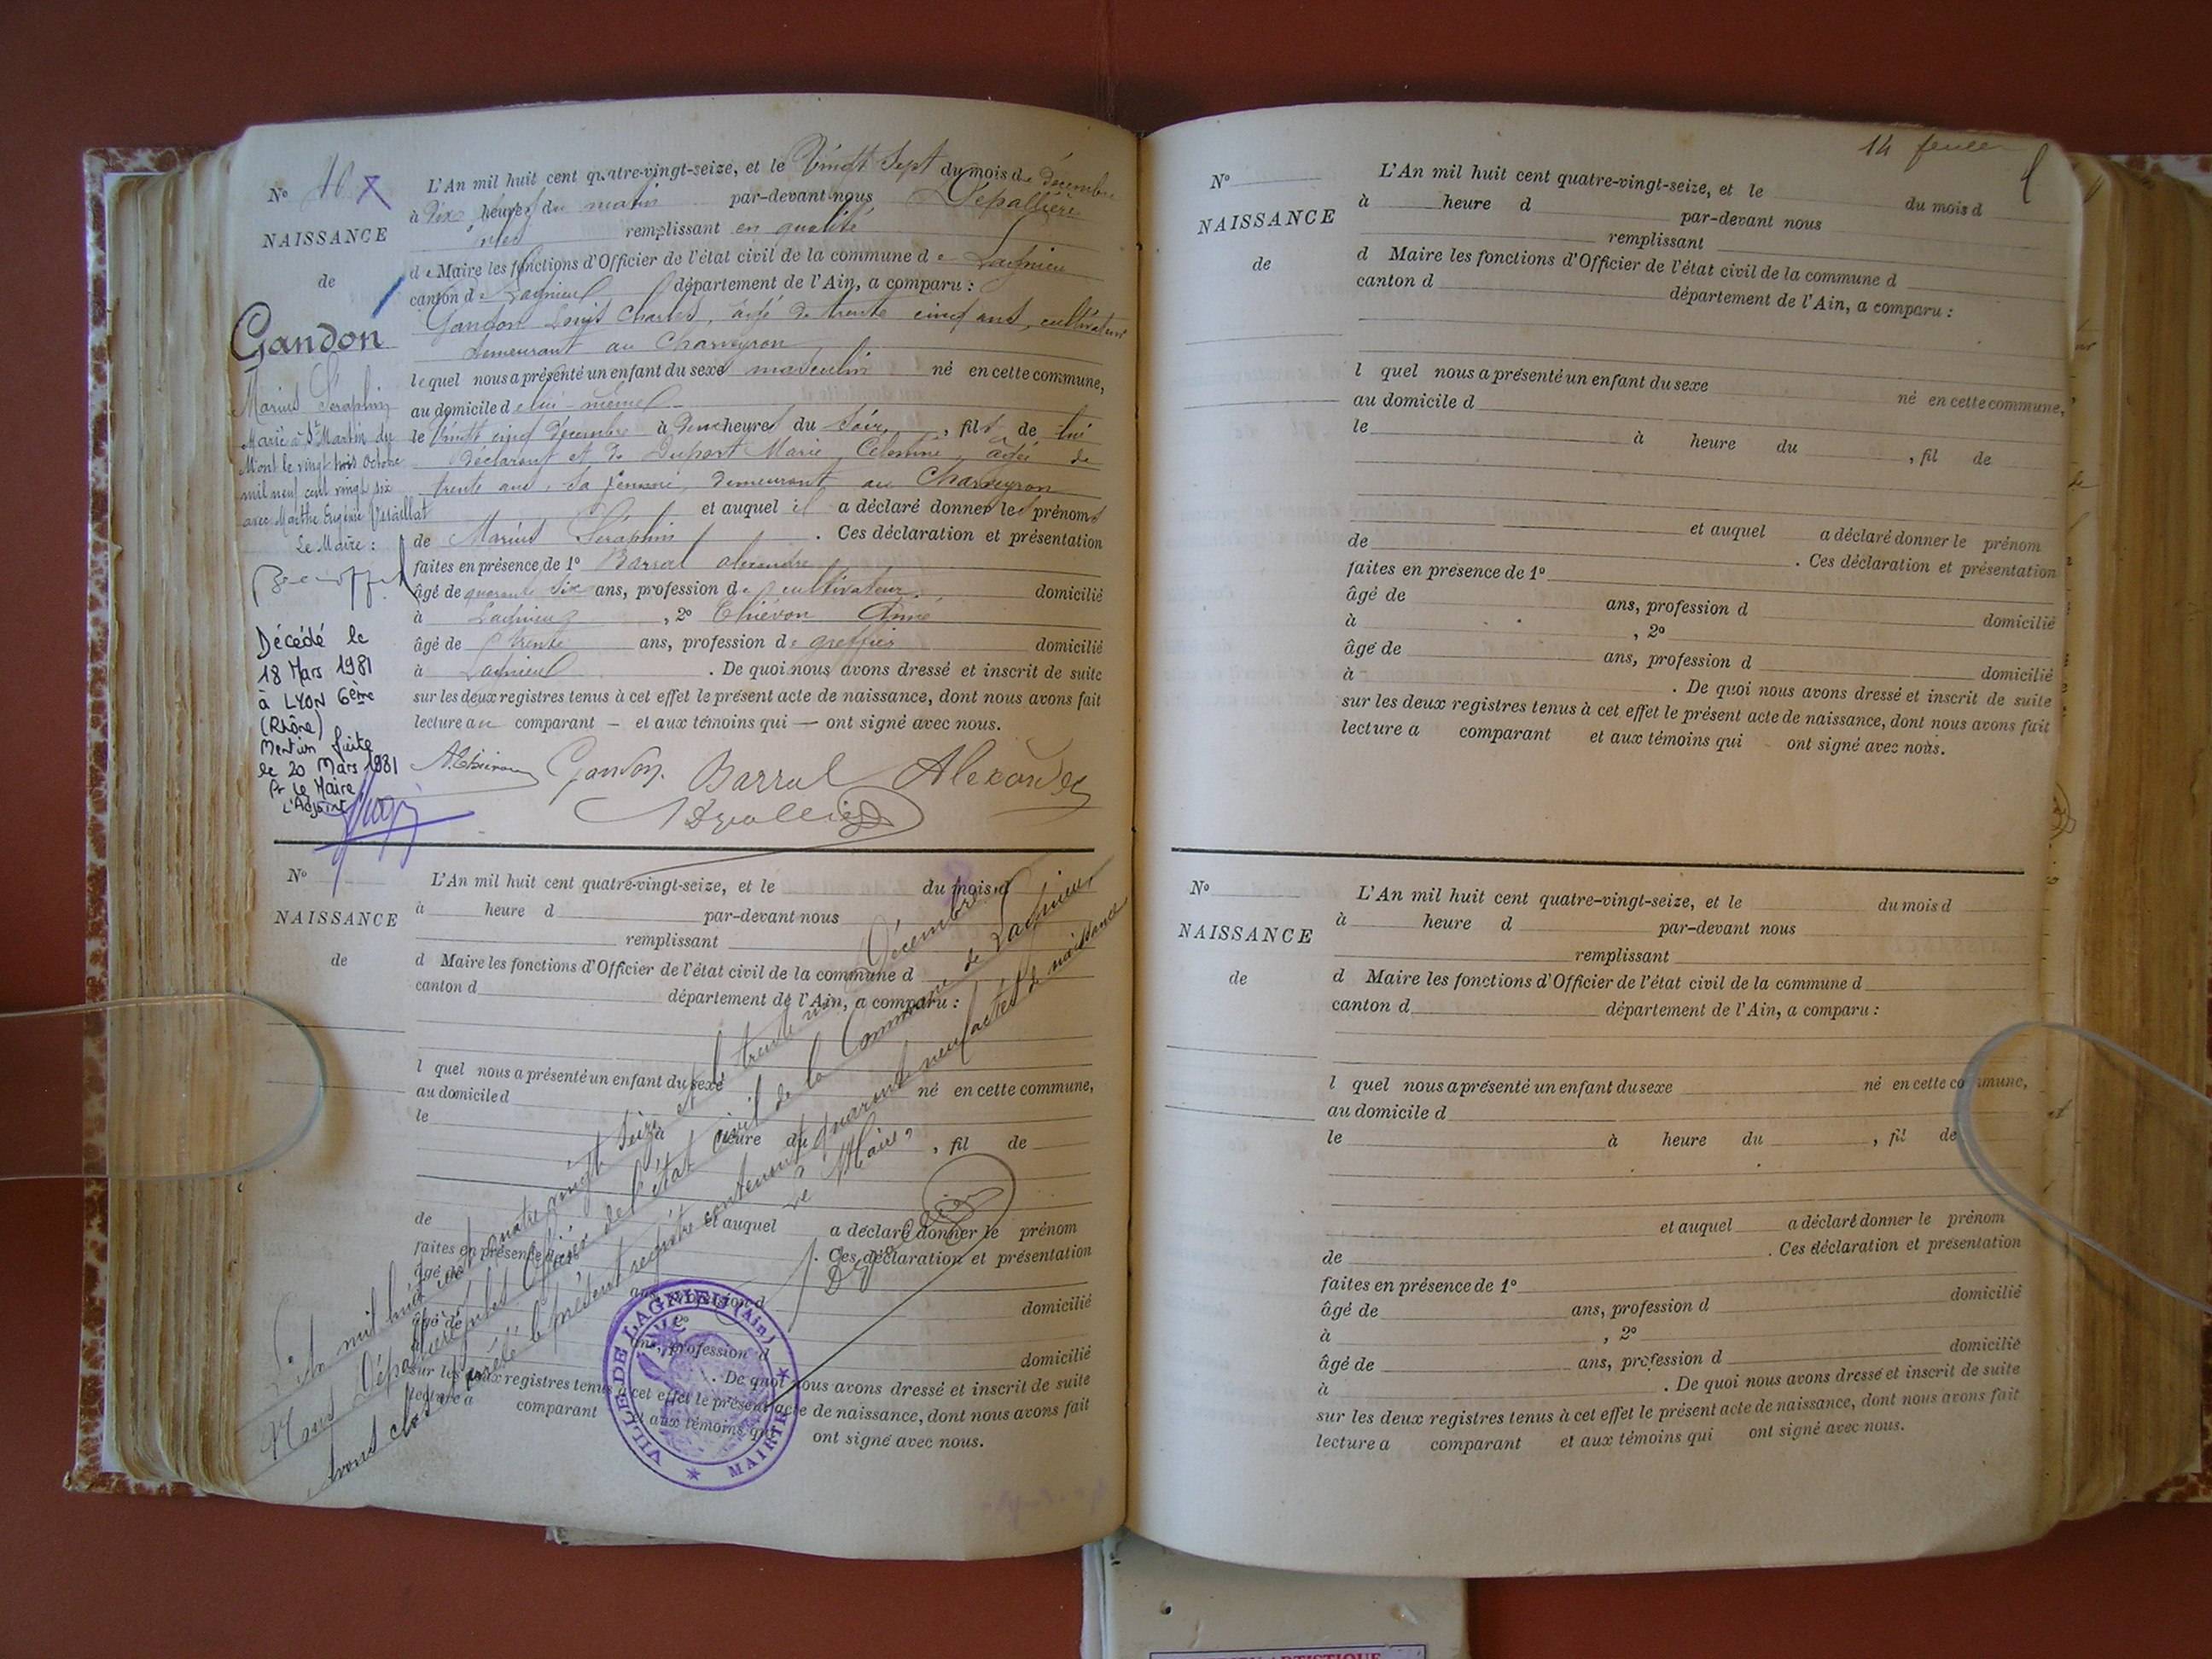 L'An mil huit cent quatre-vingt-seize, et le Vingt Sept du mois de décembre
N°
à dix heures du matin par-devant nous Dépallière
NAISSANCE
Jules remplissant en qualité
de
de Maire les fonctions d'Officier de l'état civil de la commune de Lagnieu
canton de Lagnieu département de l'Ain, a comparu :
Gandon
Gandon Louis Charles, âgé de trente cinq ans, cultivateur
demeurant au Charveyron
lequel nous a présenté un enfant du sexe masculin né en cette commune,
au domicile de lui-même
le Vingt cinq décembre à heures du soir, fils de lui
déclarant et de Dupont Marie Célestine, âgée de
trente ans, sa femme, demeurant au Charveyron
et auquel il a déclaré donner les prénoms
de Marius Séraphin . Ces déclaration et présentation
faites en présence de 1° Barral alexandre
âgé de quarante six ans, profession de cultivateur domicilié
à Lagnieu , 2° Thievon Aimé
âgé de trente ans, profession de greffier domicilié
à Lagnieu . De quoi nous avons dressé et inscrit de suite
sur les deux registres tenus à cet effet le présent acte de naissance, dont nous avons fait
lecture au comparant — et aux témoins qui — ont signé avec nous.
A. Thievon Gandon Barral Alexandre
Marius Séraphin
Marié à St Martin du
Mont le vingt trois Octobre
mil neuf cent vingt six
avec Marthe Eugénie
Le Maire :
Décédé le
18 Mars 1981
à LYON 6ème
(Rhône)
Mention faite
le 20 Mars 1981
Pr le Maire
L'Adjoint
N°
NAISSANCE
de
L'An mil huit cent quatre-vingt-seize, et le du mois d
à heure d par-devant nous
remplissant
d Maire les fonctions d'Officier de l'état civil de la commune d
canton d département de l'Ain, a comparu :
l quel nous a présenté un enfant du sexe
au domicile d né en cette commune,
le à heure du , fil de
et auquel a déclaré donner le prénom
de . Ces déclaration et présentation
faites en présence de 1°
âgé de ans, profession d domicilié
à 2°
âgé de ans, profession d domicilié
à . De quoi nous avons dressé et inscrit de suite
sur les deux registres tenus à cet effet le présent acte de naissance, dont nous avons fait
lecture a comparant et aux témoins qui ont signé avec nous.
L'an mil huit cent quatre vingt seize et le trente un Décembre
Nous Dépallière Jules Officier de l'état civil de la Commune de Lagnieu,
avons clos et arrêté le présent registre contenant quarante neuf actes de naissance
Le Maire,
VILLE DE LAGNIEU (Ain)
MAIRIE
14
N°
NAISSANCE
de
L'An mil huit cent quatre-vingt-seize, et le du mois d
à heure d par-devant nous
remplissant
d Maire les fonctions d'Officier de l'état civil de la commune d
canton d département de l'Ain, a comparu :
l quel nous a présenté un enfant du sexe né en cette commune,
au domicile d
le à heure du , fil de
et auquel a déclaré donner le prénom
de . Ces déclaration et présentation
faites en présence de 1°
âgé de ans, profession d domicilié
à , 2°
âgé de ans, profession d domicilié
à . De quoi nous avons dressé et inscrit de suite
sur les deux registres tenus à cet effet le présent acte de naissance, dont nous avons fait
lecture a comparant et aux témoins qui ont signé avec nous.
N°
NAISSANCE
de
L'An mil huit cent quatre-vingt-seize, et le du mois d
à heure d par-devant nous
remplissant
d Maire les fonctions d'Officier de l'état civil de la commune d
canton d département de l'Ain, a comparu :
l quel nous a présenté un enfant du sexe né en cette commune,
au domicile d
le à heure du , fil de
et auquel a déclaré donner le prénom
de . Ces déclaration et présentation
faites en présence de 1°
âgé de ans, profession d domicilié
à , 2°
âgé de ans, profession d domicilié
à . De quoi nous avons dressé et inscrit de suite
sur les deux registres tenus à cet effet le présent acte de naissance, dont nous avons fait
lecture a comparant et aux témoins qui ont signé avec nous.